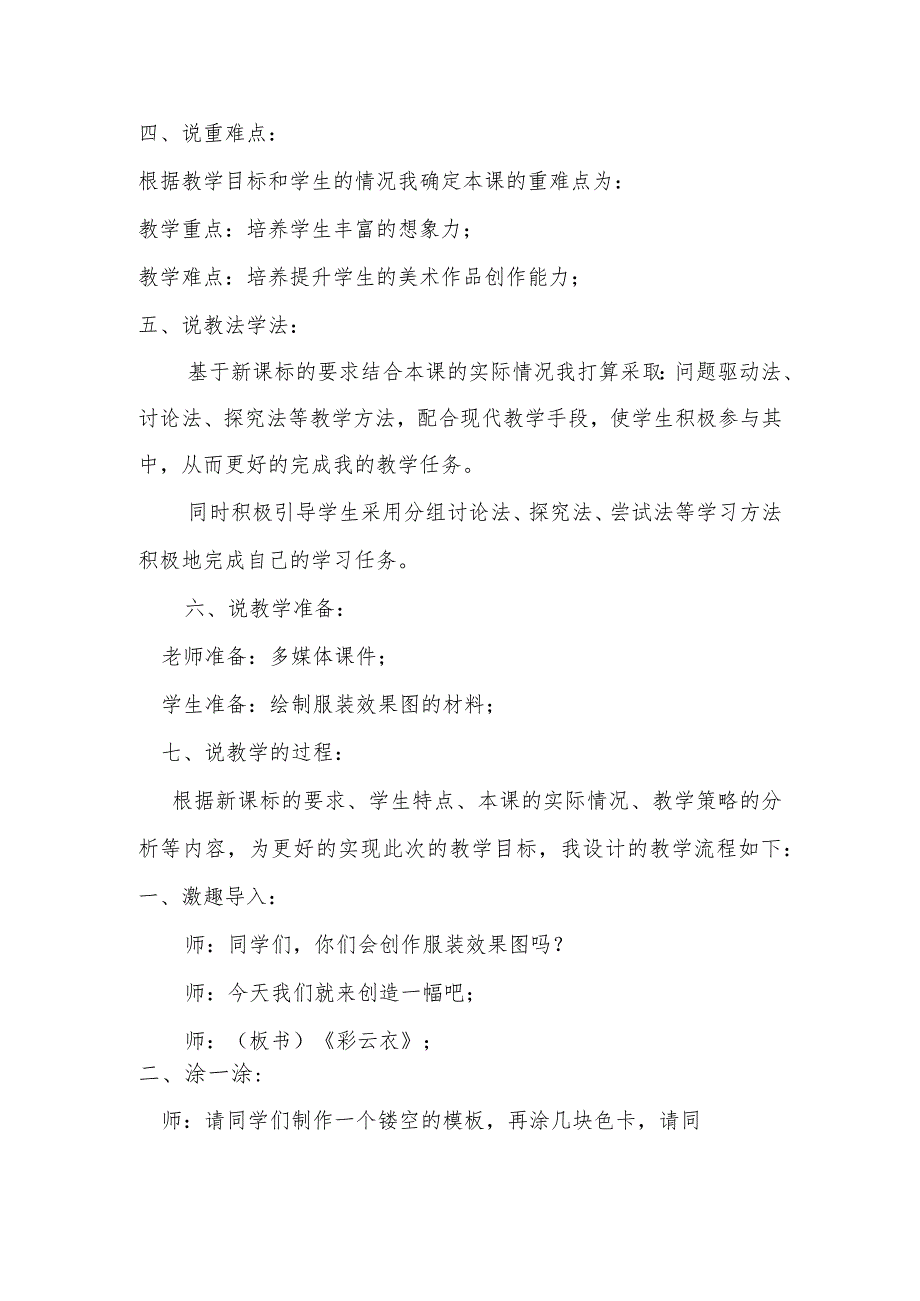 四、说重难点：
根据教学目标和学生的情况我确定本课的重难点为：
教学重点：培养学生丰富的想象力；
教学难点：培养提升学生的美术作品创作能力；
五、说教法学法：
基于新课标的要求结合本课的实际情况我打算采取：问题驱动法、
讨论法、探究法等教学方法，配合现代教学手段，使学生积极参与其
中，从而更好的完成我的教学任务。
同时积极引导学生采用分组讨论法、探究法、尝试法等学习方法
积极地完成自己的学习任务。
六、说教学准备：
老师准备：多媒体课件；
学生准备：绘制服装效果图的材料；
七、说教学的过程：
根据新课标的要求、学生特点、本课的实际情况、教学策略的分
析等内容，为更好的实现此次的教学目标，我设计的教学流程如下：
一、激趣导入：
师：同学们，你们会创作服装效果图吗？
师：今天我们就来创造一幅吧；
师：（板书）《彩云衣》；
二、涂一涂：
师：请同学们制作一个镂空的模板，再涂几块色卡，请同